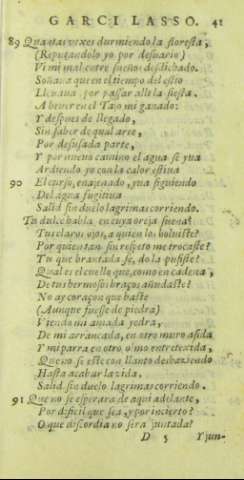 GARCI LASSO. 41
89 Quantas vezes durmiendo la floresta,
(Reputandolo yo por desuario)
Vi mi mal entre sueños desdichado.
Soñaua que en el tiempo del estio
Lleuaua, por passar alli la siesta,
A beuer en el Tajo mi ganado:
Y despues de llegado,
Sin saber de qual arte,
Por desusada parte,
Y por nueuo camino el agua se yua
Ardiendo yo con la calor estiua
90 El curso, enagenado, yua siguiendo
Del agua fugitiua
Salid sin duelo lagrimas corriendo.
Tu dulce habla en cuya oreja suena?
Tus claros ojos, a quien los boluiste?
Por quien tan sin respeto me trocaste?
Tu que brantada fe, do la pusiste?
Qual es el cuello que, como en cadena,
De tus hermosos braços añudaste?
No ay coraçon que baste
(Aunque fuesse de piedra)
Viendo mi amada yedra,
De mi arrancada, en otro muro asida
Y mi parra en otro olmo entretexida,
Que no se este con llanto deshaziendo
Hasta acabar la vida.
Salid sin duelo lagrimas corriendo.
91 Que no se esperara de aqui adelante,
Por dificil que sea, y por incierto?
O que discordia no sera juntada?
D 5 Y jun-